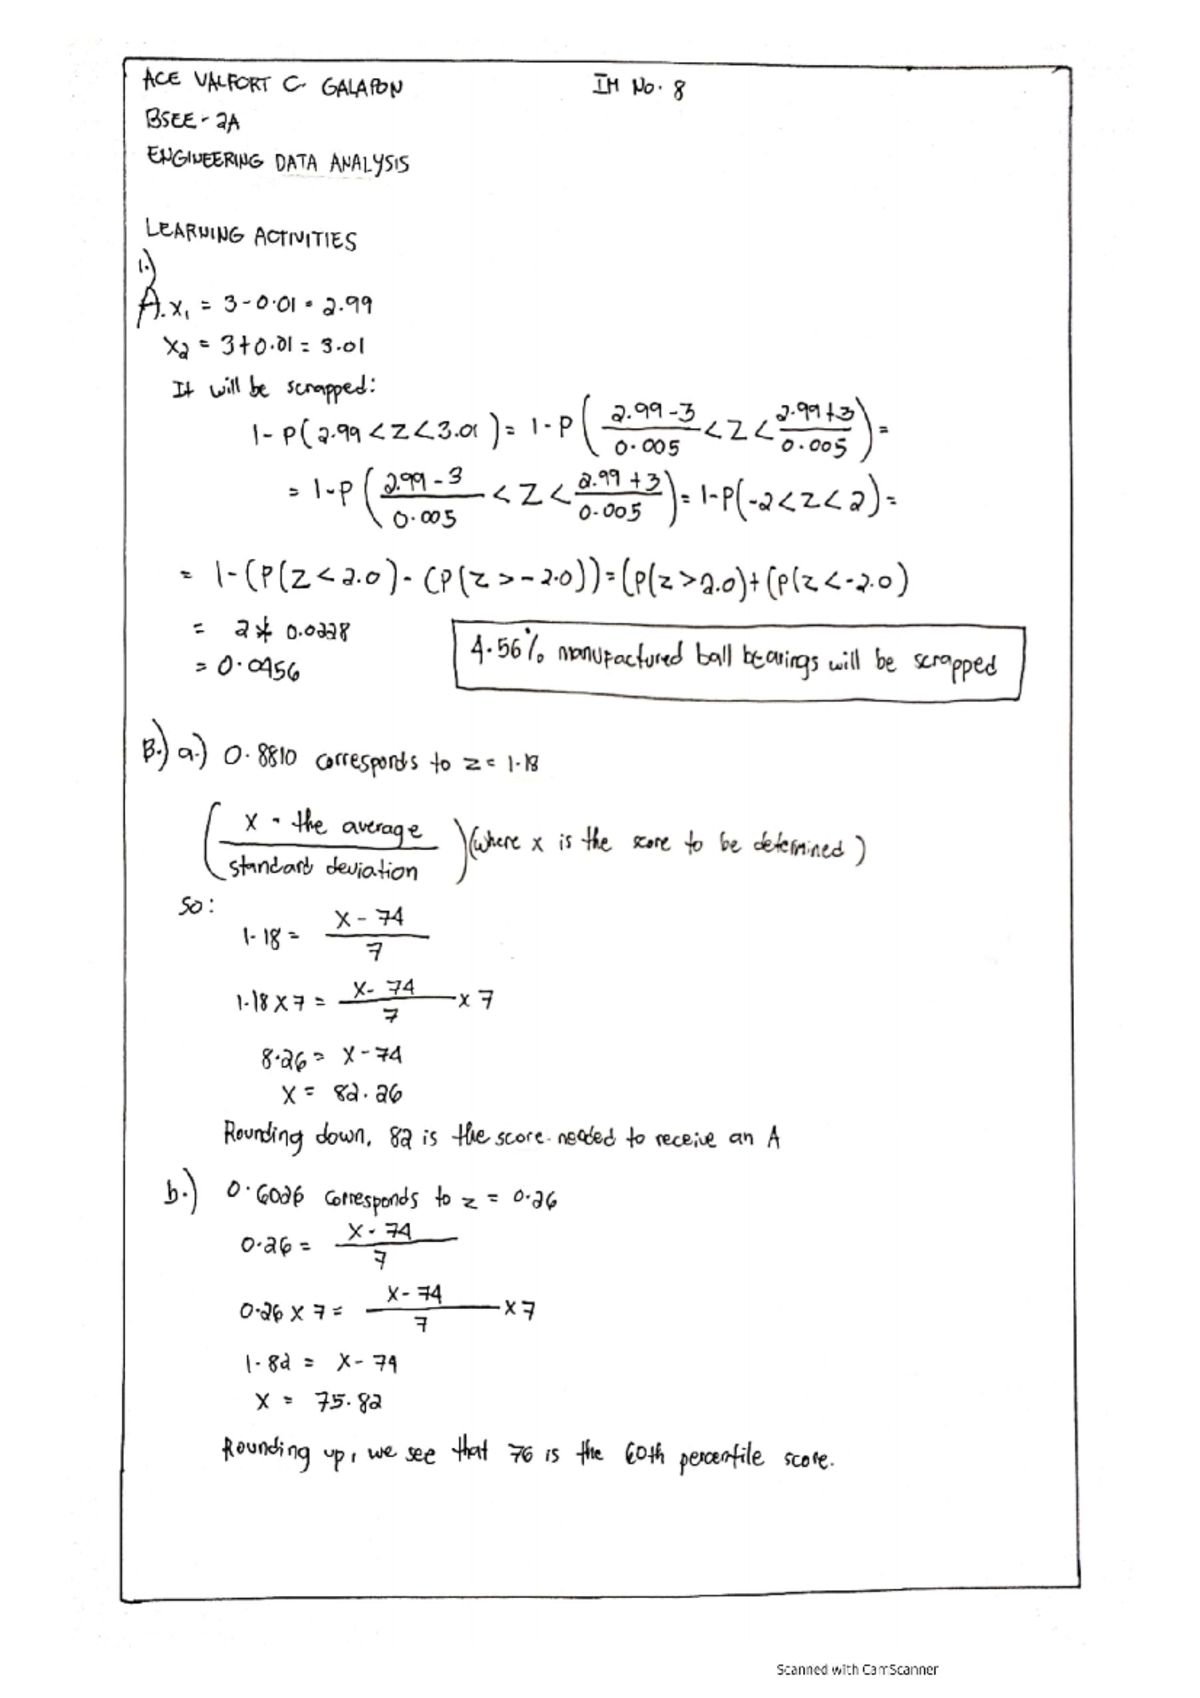 ACE VALFORT C. GALAPON IM No. 8
BSEE - 2A
ENGINEERING DATA ANALYSIS
LEARNING ACTIVITIES
1.)
A. x₁ = 3 - 0.01 = 2.99
x₂ = 3 + 0.01 = 3.01
It will be scrapped:
1 - P(2.99 < Z < 3.01) = 1 - P((2.99 - 3)/0.005 < Z < (2.99 + 3)/0.005) =
= 1 - P((2.99 - 3)/0.005 < Z < (2.99 + 3)/0.005) = 1 - P(-2 < Z < 2) =
= 1 - (P(Z < 2.0) - (P(Z > -2.0)) = (P(Z > 2.0) + (P(Z < -2.0)
= 2 * 0.0228
= 0.0456
4.56% manufactured ball bearings will be scrapped
B.) a.) 0.8810 corresponds to z = 1.18
((x - the average)/(standard deviation)) (where x is the score to be determined)
So:
1.18 = (x - 74)/7
1.18 x 7 = (x - 74)/7 x 7
8.26 = x - 74
x = 82.26
Rounding down, 82 is the score needed to receive an A
b.) 0.6026 corresponds to z = 0.26
0.26 = (x - 74)/7
0.26 x 7 = (x - 74)/7 x 7
1.82 = x - 74
x = 75.82
Rounding up, we see that 76 is the 60th percentile score.
Scanned with CamScanner